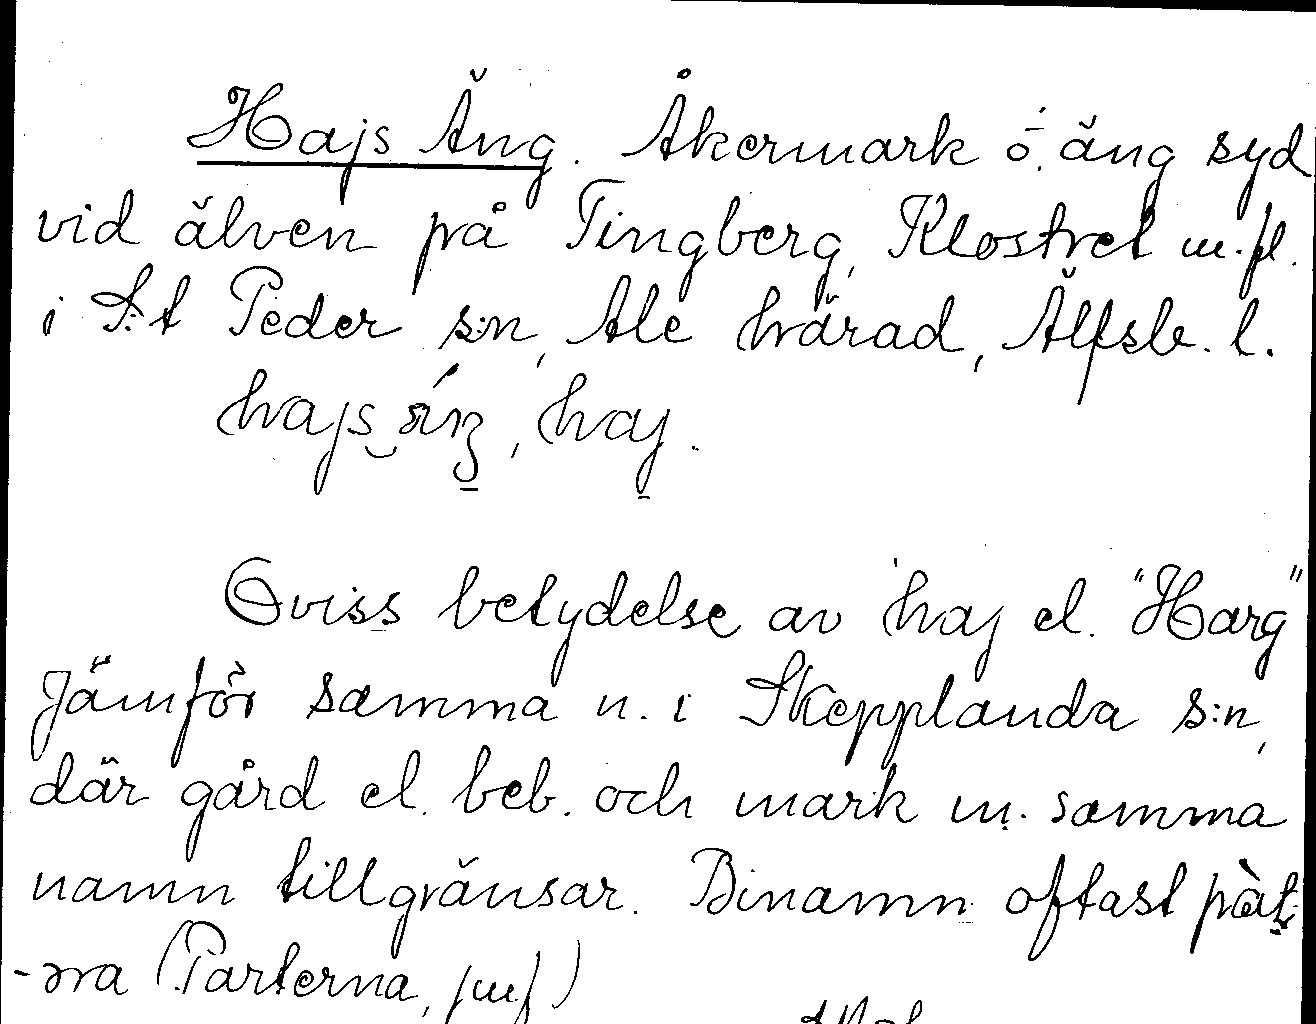 Hajs Äng. Åkermark o. äng syd
vid älven på Tingberg, Klostret m.fl.
i S:t Peder s:n, Ale härad, Älfsb. l.
hajs , haj.
Oviss betydelse av haj el. "Harg"
Jämför samma n. i Skepplanda s:n,
där gård el. beb. och mark m. samma
namn tillgränsar. Binamn oftast pàt-
-əra (Parterna, jmf)